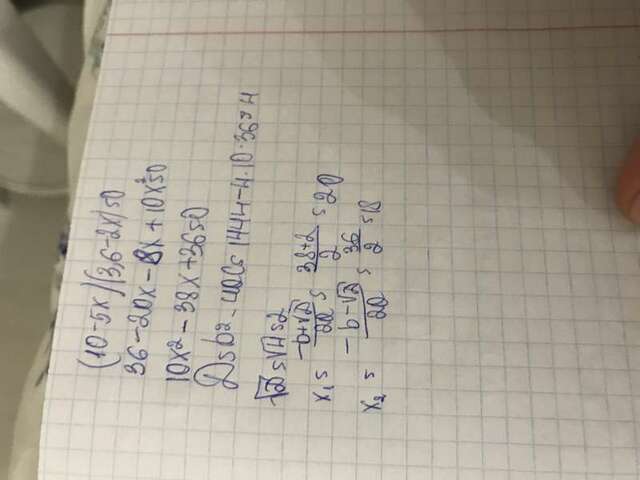 (10-5x)(3,6-2x)=0
36-20x-18x+10x²=0
10x²-38x+36=0
D=b²-4ac=1444-4·10·36=4
√D=√4=2
x₁=(-b+√D)/2a=(38+2)/2=20
x₂=(-b-√D)/2a=36/2=18